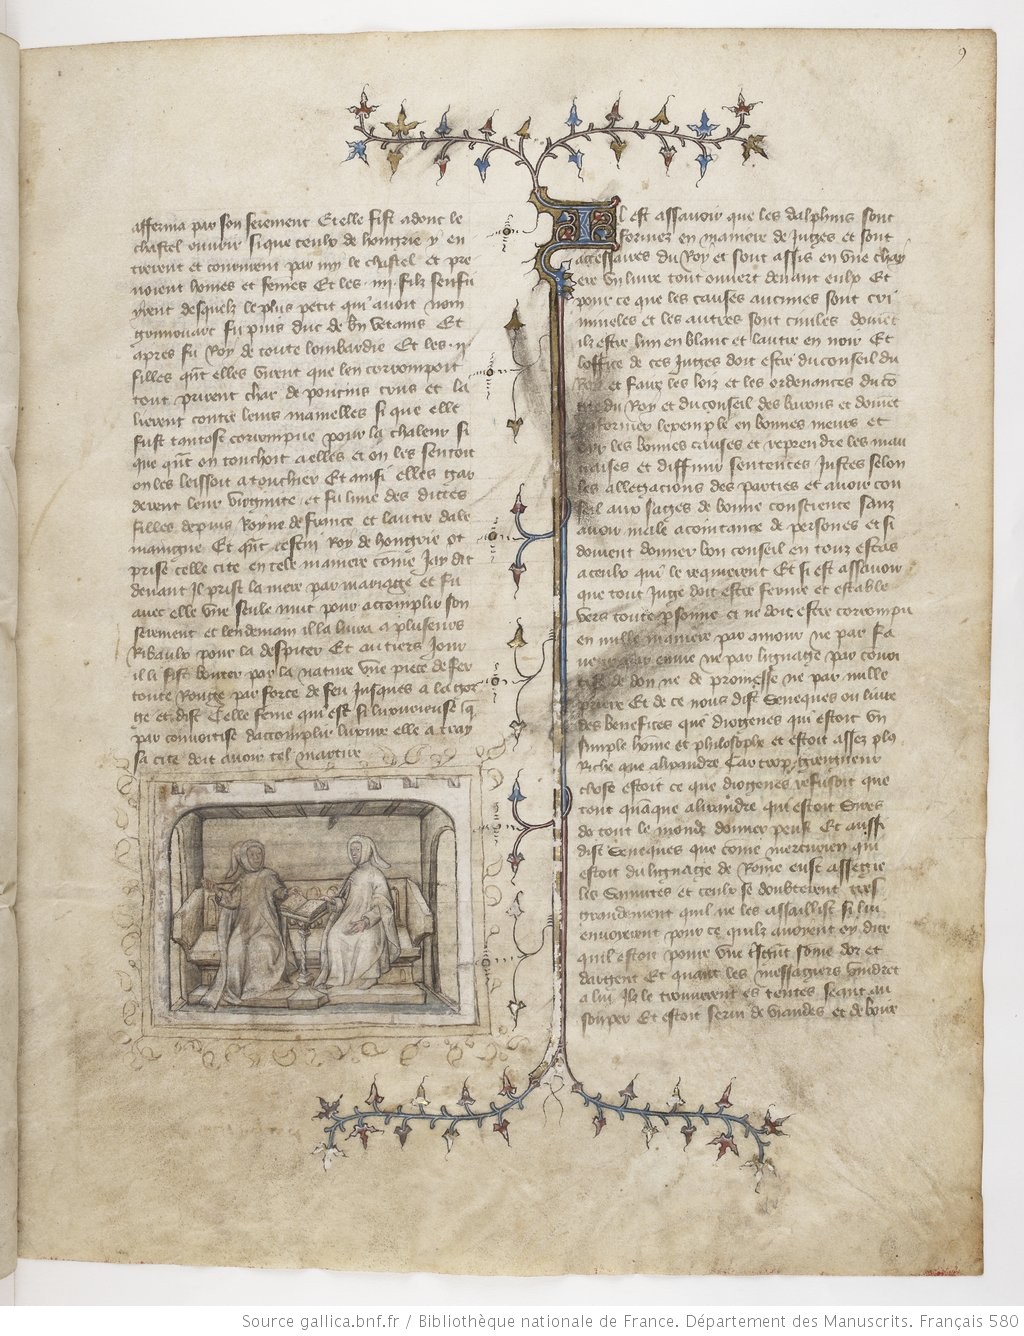 9
afferma par son serement Et elle fist adont le
chastel ouurir si que ceulx de hongrie y en
trerent et coururent par my le chastel et pre
noient homes et femes Et les .iiij. filz senfu
yrent desquelz le plus petit qui auoit nom
fu puis duc de Et
apres fu Roy de toute lombardie Et les .ij.
filles qnt elles virent que len corrompoit
tout prirent char de poucins crus et la
lierent contre leurs mamelles si que elle
fust tantost corrompue pour la chaleur si
que qnt on touchoit a elles et on les sentoit
on les leissoit a touchier Et ainsi elles gar
derent leur virginite et fu lune des dictes
filles depuis Royne de france et lautre dale
maingne Et qnt cestui Roy de hongrie ot
prise celle cite en tele maniere come Jay dit
deuant Il prist la mere par mariage et fu
auec elle vne seule nuit pour accomplir son
serement et lendemain il la liura a pluseurs
Ribaulx pour la despiter Et au tiers Jour
il li fist bouter par la nature vne piece de fer
toute Rouge par force de feu Jusques a la gor
ge et dist Celle feme qui est si luxurieuse q
par conuoitise dacomplir luxure elle a tray
sa cite doit auoir tel martire
Il est assauoir que les dalphins sont
formez en maniere de Juges et sont
assessaires du Roy et sont assis en vne chay
ere vn liure tout ouuert deuant eulx Et
pour ce que les causes aucunes sont cri
mineles et les autres sont ciuiles doiuet
ilz estre lun en blanc et lautre en noir Et
loffice de ces Juges doit estre du conseil du
Roy et faire les loiz et les ordenances du co
du Roy et du conseil des barons et doiuet
enformer le pemple en bonnes meurs et
les bonnes causes et reprendre les mau
uaises et diffinir sentences Justes selon
les allegacions des parties et auoir con
seil aux sages de bonne conscience sanz
auoir male acointance de persones et si
doiuent donner bon conseil en touz estas
a ceulx qui le requierent Et si est assauoir
que tout Juge doit estre ferme et estable
vers toute psonne et ne doit estre corrompu
en nulle maniere par amour ne par fa
ueur par enuie ne par lignage par conuoi
tise de don ne de promesse ne par nulle
priere Et de ce nous dist Seneques ou liure
des benefices que diogenes qui estoit vn
simple home et philosophe et estoit assez plus
Riche que alixandre Car trop greigneur
chose estoit ce que diogenes refusoit que
tout quanque alixandre qui estoit Sires
de tout le monde donner peust Et aussi
dist Seneques que come mercurien qui
estoit du lignage de Rome eust assegie
les Sannites et ceulx se doubterent tres
grandement quil ne les assaillist si lui
enuoierent pour ce quilz auoient oy dire
quil estoit poure vne some dor et
dargent Et quant les messagiers vindret
a lui Ilz le trouuerent es tentes seant au
souper Et estoit serui de viandes et de boire
Source gallica.bnf.fr / Bibliothèque nationale de France. Département des Manuscrits. Français 580